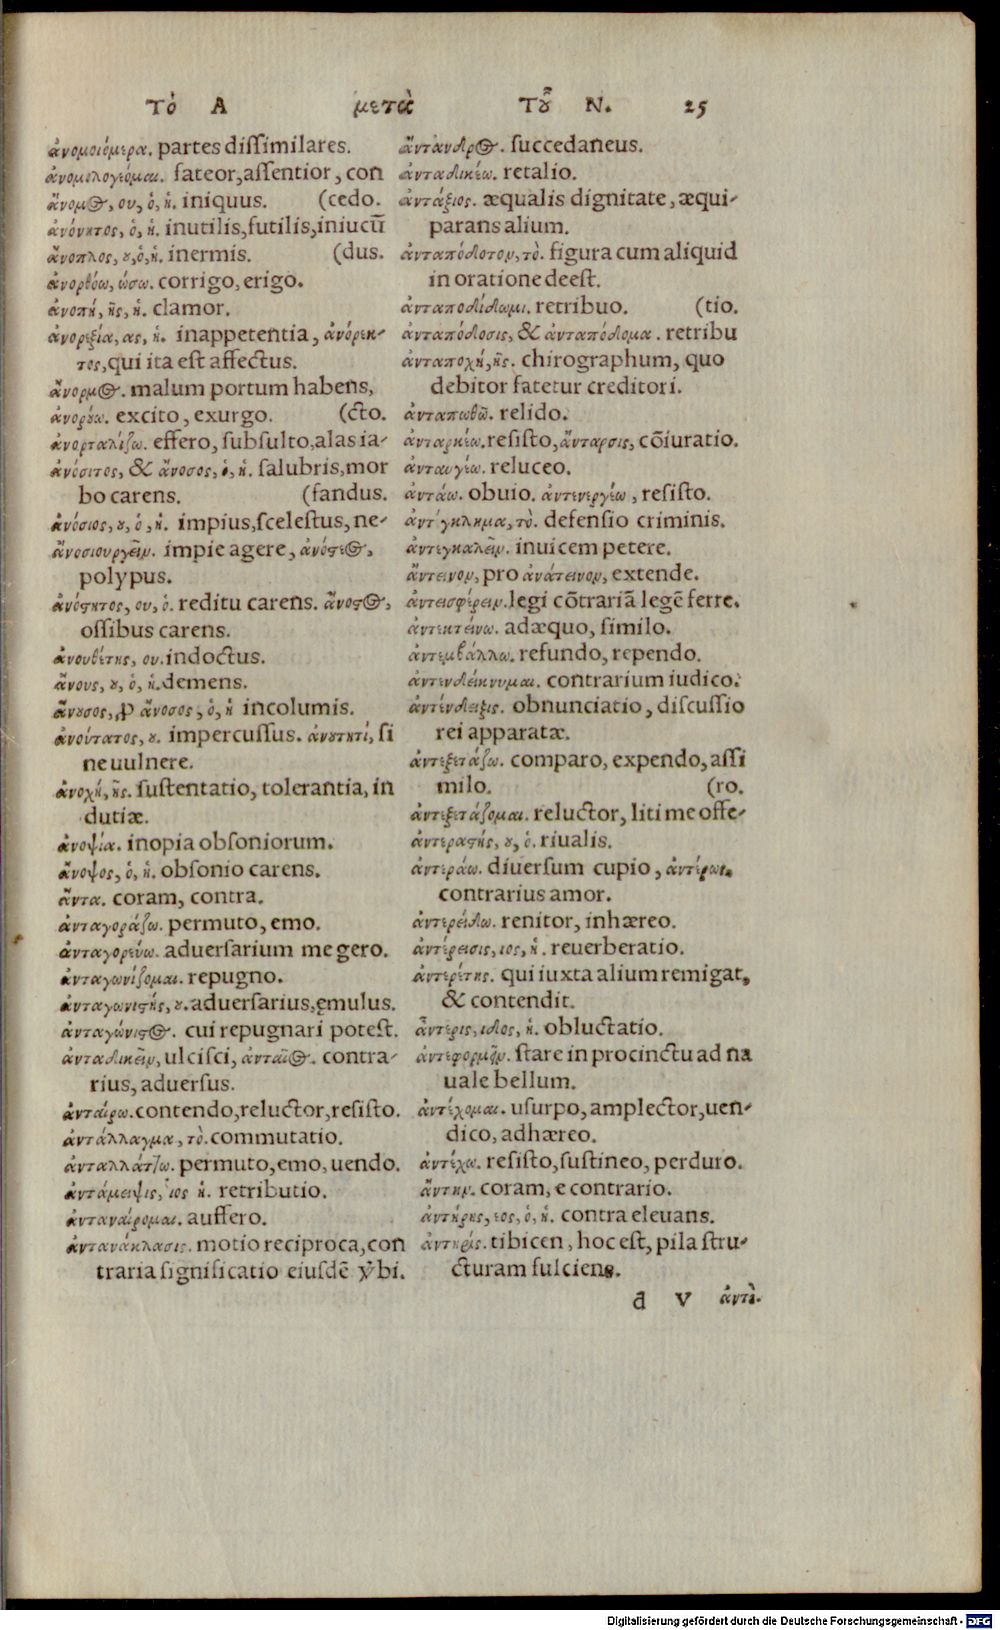 Τὸ Α μετὰ Τοῦ Ν. 25
ἀνομοιόμερα. partes dissimilares.
ἀνομολογέομαι. fateor, assentior, con
ἄνομος, ου, ὁ, ἡ. iniquus. (cedo.
ἀνόνητος, ὁ, ἡ. inutilis, futilis, iniucū
ἄνοπλος, ου, ὁ, ἡ. inermis. (dus.
ἀνορθόω, ώσω. corrigo, erigo.
ἀνοπή, ῆς, ἡ. clamor.
ἀνορεξία, ας, ἡ. inappetentia, ἀνόρεκ-
τος, qui ita est affectus.
ἄνορμος. malum portum habens,
ἀνορύω. excito, exurgo. (cto.
ἀνορταλίζω. effero, subsulto, alas ia-
ἀνόσιτος, & ἄνοσος, ὁ, ἡ. salubris, mor
bo carens. (fandus.
ἀνόσιος, ου, ὁ, ἡ. impius, scelestus, ne-
ἀνοσιουργεῖν. impie agere, ἀνόστεος,
polypus.
ἀνόστητος, ου, ὁ. reditu carens. ἄνοστος,
ossibus carens.
ἀνουθέτης, ου. indoctus.
ἄνους, ου, ὁ, ἡ. demens.
ἄνουσος, ꝓ ἄνοσος, ὁ, ἡ incolumis.
ἀνούτατος, ου. impercussus. ἀνουτητί, si
ne uulnere.
ἀνοχή, ῆς. sustentatio, tolerantia, in
dutiæ.
ἀνοψία. inopia obsoniorum.
ἄνοψος, ὁ, ἡ. obsonio carens.
ἄντα. coram, contra.
ἀνταγοράζω. permuto, emo.
ἀνταγορεύω. aduersarium me gero.
ἀνταγωνίζομαι. repugno.
ἀνταγωνιστής, ου. aduersarius, ęmulus.
ἀνταγώνιστος. cui repugnari potest.
ἀνταδικεῖν, ulcisci, ἀνταῖος. contra-
rius, aduersus.
ἀνταίρω. contendo, reluctor, resisto.
ἀντάλλαγμα, τὸ. commutatio.
ἀνταλλάτζω. permuto, emo, uendo.
ἀντάμειψις, ιος ἡ. retributio.
ἀνταναίρομαι. auffero.
ἀντανάκλασις. motio reciproca, con
traria significatio eiusdē ỳbi.
ἄντανδρος. succedaneus.
ἀνταδικέω. retalio.
ἀντάξιος. æqualis dignitate, æqui-
parans alium.
ἀνταπόδοτον, τὸ. figura cum aliquid
in oratione deest.
ἀνταποδίδωμι. retribuo. (tio.
ἀνταπόδοσις, & ἀνταπόδομα. retribu
ἀνταποχή, ῆς. chirographum, quo
debitor fatetur creditori.
ἀνταπωθῶ. relido.
ἀνταρκέω. resisto, ἄνταρσις, cōiuratio.
ἀνταυγέω. reluceo.
ἀντάω. obuio. ἀντενεργέω, resisto.
ἀντέγκλημα, τὸ. defensio criminis.
ἀντεγκαλεῖν. inuicem petere.
ἄντεινον, pro ἀνάτεινον, extende.
ἀντεισφέρειν. legi cōtrariā legē ferre.
ἀντεκτείνω. adæquo, similo.
ἀντεμβάλλω. refundo, rependo.
ἀντενδείκνυμαι. contrarium iudico.
ἀντένδειξις. obnunciatio, discussio
rei apparatæ.
ἀντεξετάζω. comparo, expendo, assi
milo. (ro.
ἀντεξετάζομαι. reluctor, liti me offe-
ἀντεραστής, ου, ὁ. riualis.
ἀντεράω. diuersum cupio, ἀντέρως.
contrarius amor.
ἀντερείδω. renitor, inhæreo.
ἀντέρεισις, ιος, ἡ. reuerberatio.
ἀντερέτης. qui iuxta alium remigat,
& contendit.
ἄντερις, ιδος, ἡ. obluctatio.
ἀντεφορμῆν. stare in procinctu ad na
uale bellum.
ἀντέχομαι. usurpo, amplector, uen-
dico, adhæreo.
ἀντέχω. resisto, sustineo, perduro.
ἄντην. coram, e contrario.
ἀντήρης, εος, ὁ, ἡ. contra eleuans.
ἀντηρίς. tibicen, hoc est, pila stru-
cturam fulciens.
d V ἀντὶ.
Digitalisierung gefördert durch die Deutsche Forschungsgemeinschaft - DFG